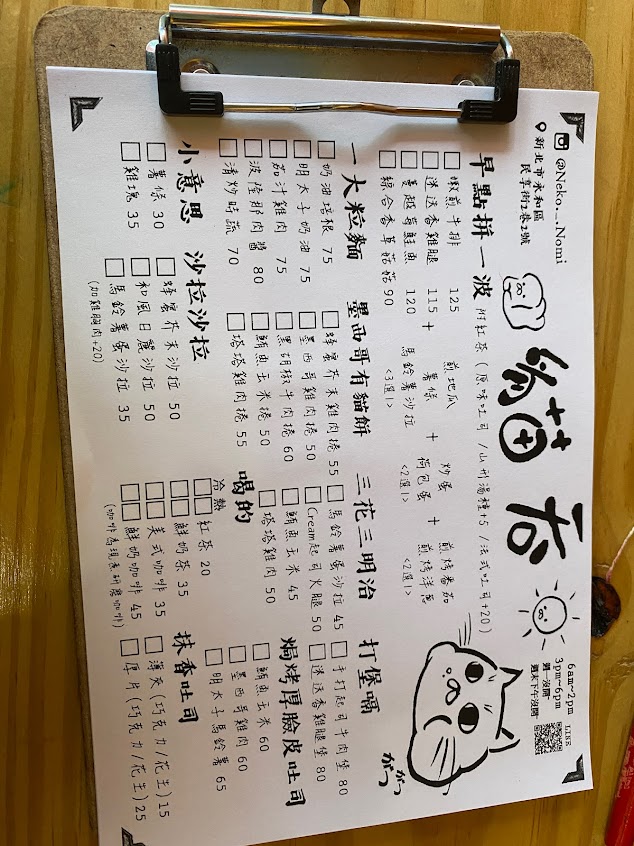 @Neko._.Nomi
新北市永和區
民享街2巷2號
貓 否
6am~2pm
3pm~6pm
週一沒開
週末下午沒開
LINE
早點拼一波 附紅茶(原味吐司/山形湯種+5/法式吐司+20)
嫩煎牛排 125
迷迭香雞腿 115
蔓越莓鮭魚 120
綜合香草菇菇 90
+
煎地瓜
薯條
馬鈴薯沙拉
<3選1>
+
炒蛋
荷包蛋
<2選1>
+
煎烤番茄
煎烤洋蔥
<2選1>
一大粒麵
奶油培根 75
明太子奶油 75
茄汁雞肉 75
波隆那肉醬 80
清炒時蔬 70
墨西哥有貓餅
蜂蜜芥末雞肉捲 55
墨西哥雞肉捲 50
黑胡椒牛肉捲 60
鮪魚玉米捲 50
塔塔雞肉捲 55
三花三明治
馬鈴薯蛋沙拉 45
Cream起司火腿 50
鮪魚玉米 45
塔塔雞肉 50
打堡嗝
手打起司牛肉堡 80
迷迭香雞腿堡 80
がつ
がつ
小意思
薯條 30
雞塊 35
沙拉沙拉
蜂蜜芥末沙拉 50
和風日式沙拉 50
馬鈴薯蛋沙拉 35
(加雞胸肉+20)
喝的
冷熱
紅茶 20
鮮奶茶 35
美式咖啡 35
鮮奶咖啡 45
(咖啡為現煮研磨咖啡)
焗烤厚臉皮吐司
鮪魚玉米 60
墨西哥雞肉 60
明太子馬鈴薯 65
抹香吐司
薄灰(巧克力/花生) 15
厚片(巧克力/花生) 25